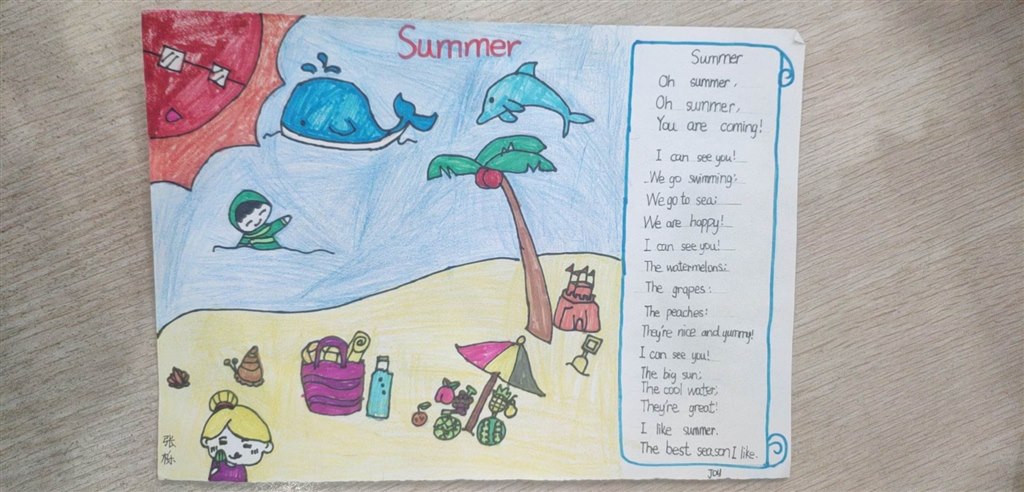 Summer
Summer
Oh summer,
Oh summer,
You are coming!
I can see you!
We go swimming;
We go to sea;
We are happy!
I can see you!
The watermelons;
The grapes;
The peaches;
They're nice and yummy!
I can see you!
The big sun;
The cool water;
They're great!
I like summer.
The best season I like.
Joy
张
栎